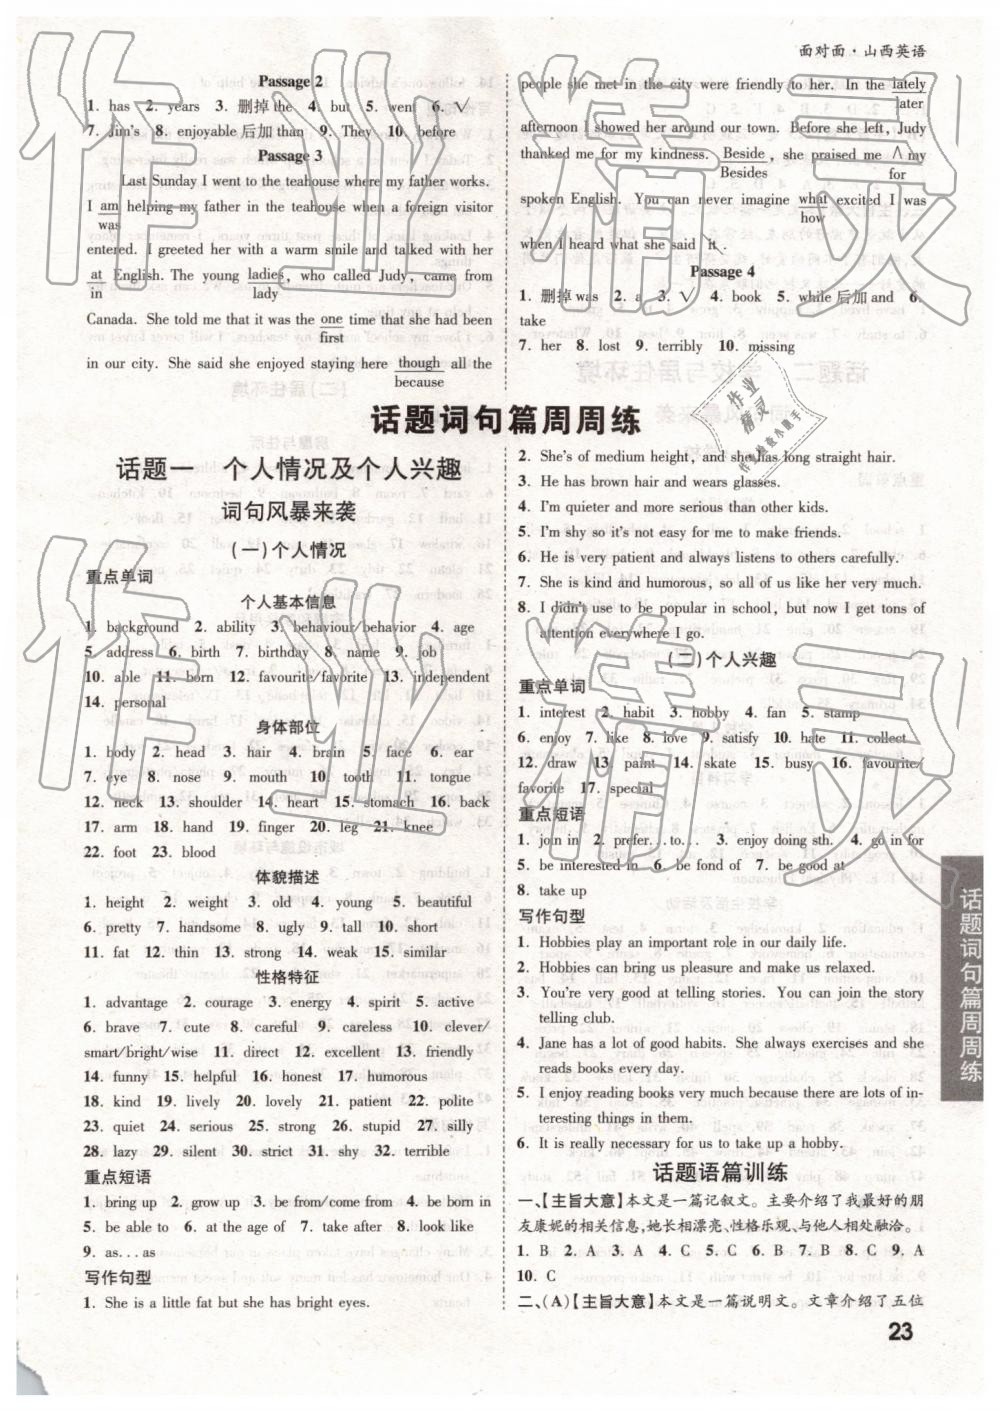 面对面·山西英语
Passage 2
1. has 2. years 3. 删掉 the 4. but 5. went 6. √
7. Jim's 8. enjoyable 后加 than 9. They 10. before
Passage 3
Last Sunday I went to the teahouse where my father works.
I am helping my father in the teahouse when a foreign visitor
was
entered. I greeted her with a warm smile and talked with her
at English. The young ladies, who called Judy, came from
in lady
Canada. She told me that it was the one time that she had been
first
in our city. She said she enjoyed staying here though all the
because
people she met in the city were friendly to her. In the lately
later
afternoon I showed her around our town. Before she left, Judy
thanked me for my kindness. Beside, she praised me ∧ my
Besides for
spoken English. You can never imagine what excited I was
how
when I heard what she said it.
Passage 4
1. 删掉 was 2. a 3. √ 4. book 5. while 后加 and 6.
take
7. her 8. lost 9. terribly 10. missing
话题词句篇周周练
话题一 个人情况及个人兴趣
词句风暴来袭
(一)个人情况
重点单词
个人基本信息
1. background 2. ability 3. behaviour/behavior 4. age
5. address 6. birth 7. birthday 8. name 9. job
10. able 11. born 12. favourite/favorite 13. independent
14. personal
身体部位
1. body 2. head 3. hair 4. brain 5. face 6. ear
7. eye 8. nose 9. mouth 10. tooth 11. tongue
12. neck 13. shoulder 14. heart 15. stomach 16. back
17. arm 18. hand 19. finger 20. leg 21. knee
22. foot 23. blood
体貌描述
1. height 2. weight 3. old 4. young 5. beautiful
6. pretty 7. handsome 8. ugly 9. tall 10. short
11. fat 12. thin 13. strong 14. weak 15. similar
性格特征
1. advantage 2. courage 3. energy 4. spirit 5. active
6. brave 7. cute 8. careful 9. careless 10. clever/
smart/bright/wise 11. direct 12. excellent 13. friendly
14. funny 15. helpful 16. honest 17. humorous
18. kind 19. lively 20. lovely 21. patient 22. polite
23. quiet 24. serious 25. strong 26. stupid 27. silly
28. lazy 29. silent 30. strict 31. shy 32. terrible
重点短语
1. bring up 2. grow up 3. come from 4. be born in
5. be able to 6. at the age of 7. take after 8. look like
9. as...as
写作句型
1. She is a little fat but she has bright eyes.
2. She's of medium height, and she has long straight hair.
3. He has brown hair and wears glasses.
4. I'm quieter and more serious than other kids.
5. I'm shy so it's not easy for me to make friends.
6. He is very patient and always listens to others carefully.
7. She is kind and humorous, so all of us like her very much.
8. I didn't use to be popular in school, but now I get tons of
attention everywhere I go.
(二)个人兴趣
重点单词
1. interest 2. habit 3. hobby 4. fan 5. stamp
6. enjoy 7. like 8. love 9. satisfy 10. hate 11. collect
12. draw 13. paint 14. skate 15. busy 16. favourite/
favorite 17. special
重点短语
1. join in 2. prefer...to... 3. enjoy doing sth. 4. go in for
5. be interested in 6. be fond of 7. be good at
8. take up
写作句型
1. Hobbies play an important role in our daily life.
2. Hobbies can bring us pleasure and make us relaxed.
3. You're very good at telling stories. You can join the story
telling club.
4. Jane has a lot of good habits. She always exercises and she
reads books every day.
5. I enjoy reading books very much because there are lots of in-
teresting things in them.
6. It is really necessary for us to take up a hobby.
话题语篇训练
一、【主旨大意】本文是一篇记叙文。主要介绍了我最好的朋
友康妮的相关信息,她长相漂亮、性格乐观、与他人相处融洽。
1. B 2. A 3. A 4. C 5. A 6. B 7. B 8. C 9. A
10. C
二、(A)【主旨大意】本文是一篇说明文。文章介绍了五位
话题词句篇周周练
23
作业精灵
作业精灵
作业
精灵
作业检查小助手